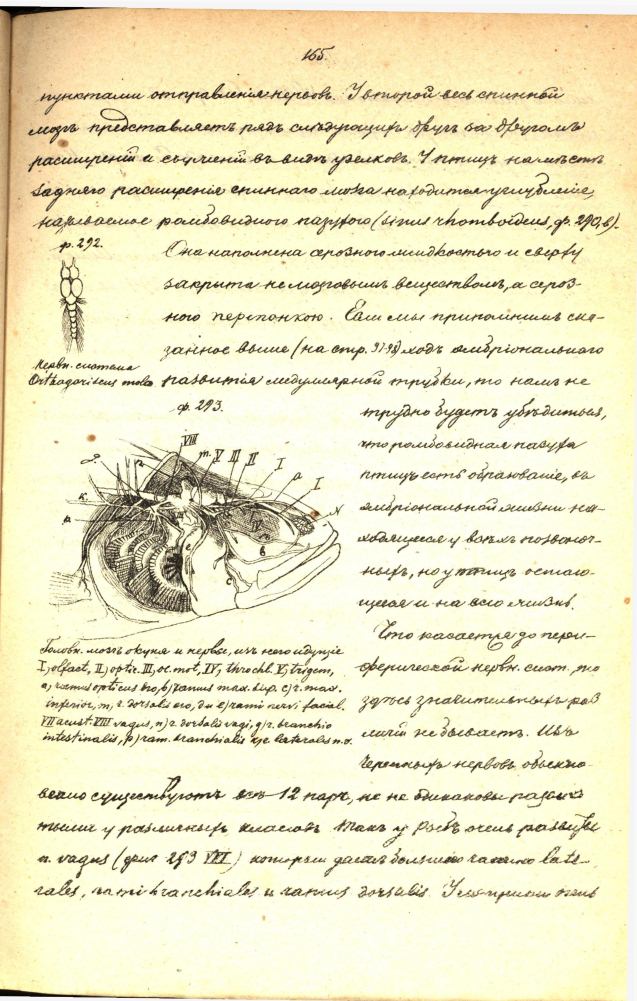 165.
пунктами отправленія нервовъ. У второй весь спинной
мозгъ представляетъ рядъ слѣдующихъ другъ за другомъ
расширеній и съуженій въ видѣ узелковъ. У птицъ на мѣстѣ
задняго расширенія спиннаго мозга находится углубленіе,
называемое ромбовидною пазухою (sinus rhomboideus, ф. 290, b).
ф. 292.
Она наполнена серозною жидкостью и сверху
закрыта не мозговымъ веществомъ, а сероз-
ною перепонкою. Если мы припомнимъ ска-
занное выше (на стр. 97-98) ходъ эмбріональнаго
Нервн. система
Orthagoriscus mola.
развитія медуллярной трубки, то намъ не
ф. 293.
трудно будетъ убѣдиться,
что ромбовидная пазуха
птицъ есть образованіе, въ
эмбріональной жизни на-
ходящееся у всѣхъ позвоноч-
ныхъ, но у птицъ остаю-
щееся и на всю жизнь.
VIII m. V III II I a I N
IV b c
Головн. мозгъ окуня и нервы, изъ него идущіе
I, olfact, II, optic. III, oc. mot, IV, throchl. V, trigem,
a, ramus opticus, b) ramus max. sup. c) r. max.
inferior, m, r. dorsalis, d и e) rami nervi facial.
VII acust. VIII vagus, n) r. dorsalis vagi, g) r. branchio
intestinalis, p) ram. branchialis lateralis n. v.
Что касается до пери-
ферической нервн. сист. то
здѣсь значительныхъ раз
личій не бываетъ. Изъ
Черепныхъ нервовъ обыкно-
венно существуютъ всѣ 12 паръ, но не одинаковы развы
тыми у различныхъ классовъ. Такъ у рыбъ очень развитъ
n. vagus (фиг 293 VIII) который даетъ late-
rales, rami branchiales и ramus dorsalis. У